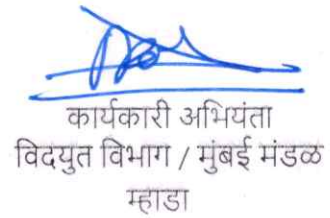 कार्यकारी अभियंता
विदयुत विभाग / मुंबई मंडळ
म्हाडा